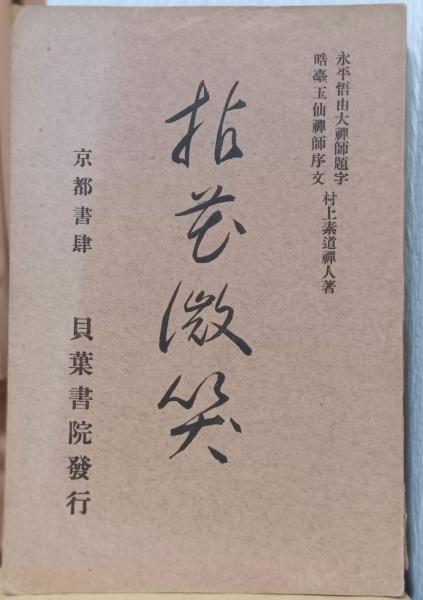 永平悟由大禪師題字
晧臺玉仙禪師序文
村上素道禪人著
拈花微笑
京都書肆 貝葉書院發行